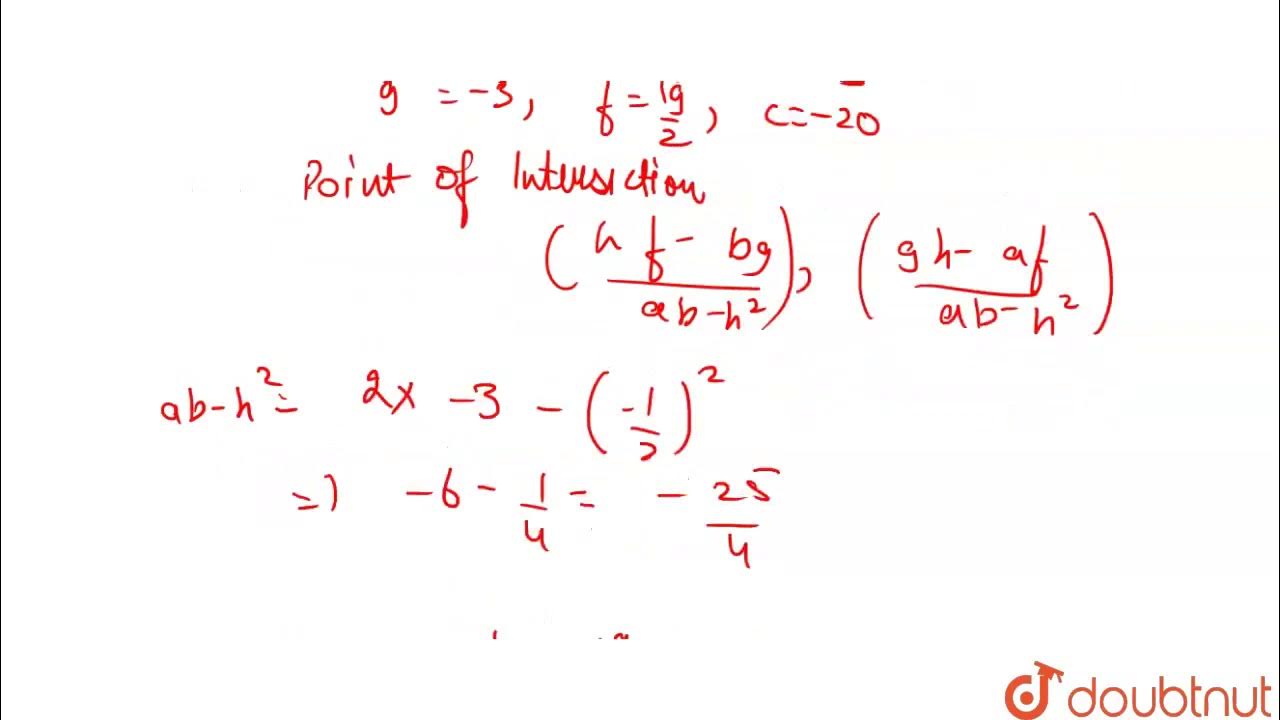 g = -3, f = 19/2, c = -20
Point of Intersection
(hf - bg / ab - h²), (gh - af / ab - h²)
ab - h² = 2 x -3 - (-1/2)²
=) -6 - 1/4 = -25/4
doubtnut